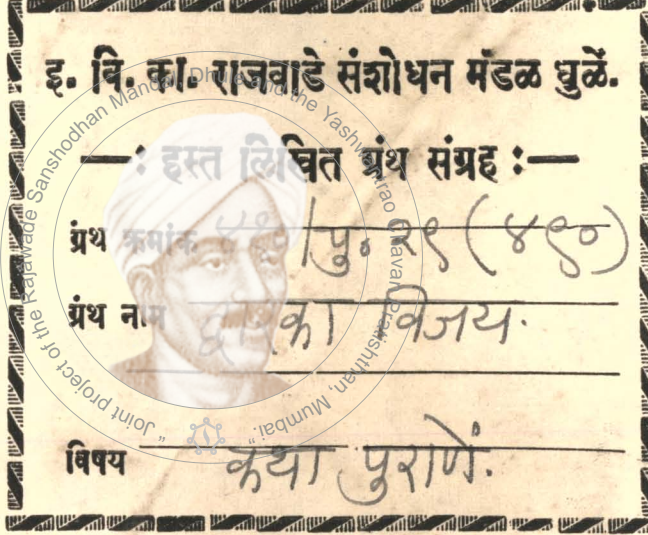 इ. वि. का. राजवाडे संशोधन मंडळ धुळें.
—: हस्त लिखित ग्रंथ संग्रह :—
ग्रंथ क्रमांक /पु. २९ (४९०)
ग्रंथ नाम द्वारका विजय.
विषय कथा पुराणें.
"Joint project of the Rajawade Sanshodhan Mandal, Dhule and the Yashwantrao Chavan Pratishthan, Mumbai."